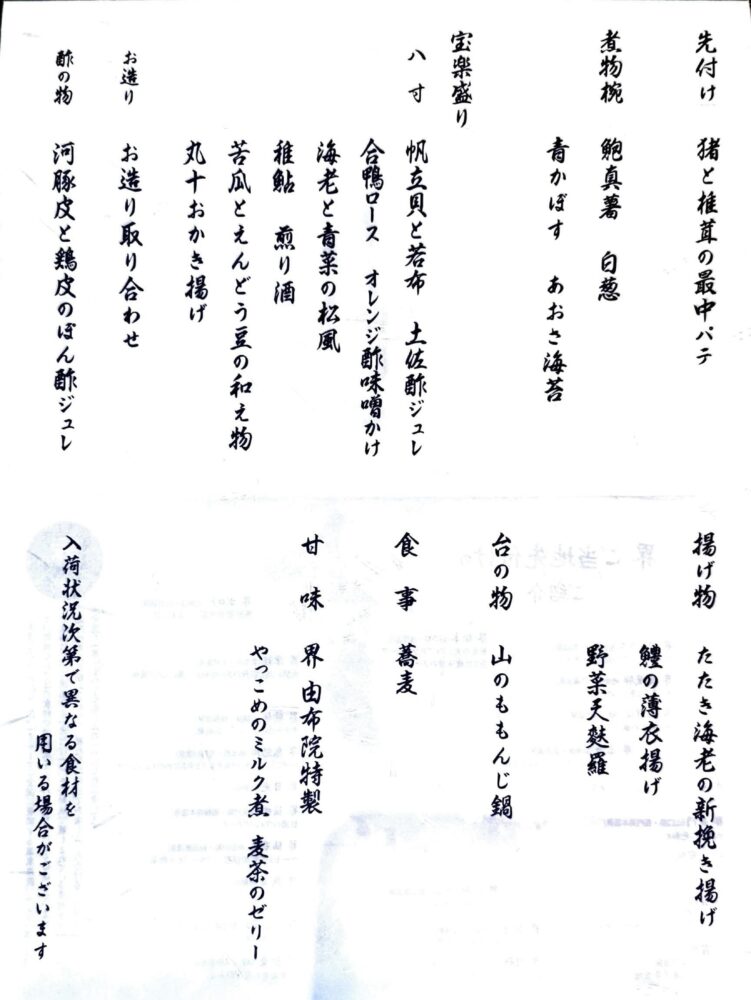 先付け 猪と椎茸の最中パテ
煮物椀 鮑真薯 白葱
青かぼす あおさ海苔
宝楽盛り
八寸 帆立貝と若布 土佐酢ジュレ
合鴨ロース オレンジ酢味噌かけ
海老と青菜の松風
稚鮎 煎り酒
苦瓜とえんどう豆の和え物
丸十おかき揚げ
お造り お造り取り合わせ
酢の物 河豚皮と鶏皮のぽん酢ジュレ
揚げ物 たたき海老の新挽き揚げ
鱧の薄衣揚げ
野菜天麩羅
台の物 山のももんじ鍋
食事 蕎麦
甘味 界 由布院特製
やっこめのミルク煮 麦茶のゼリー
入荷状況次第で異なる食材を
用いる場合がございます